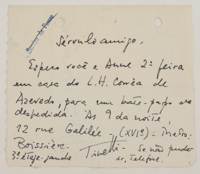 Sérvulo amigo,
Espero você e Anne 2ª feira
em casa do L.H. Corrêa de
Azevedo, para um bate-papo de
despedida. Às 9 da noite,
12 rue Galilée - (XVIe) - Metro:
Boissière.
3º étage-gauche
Se não puder
vir, telefone.